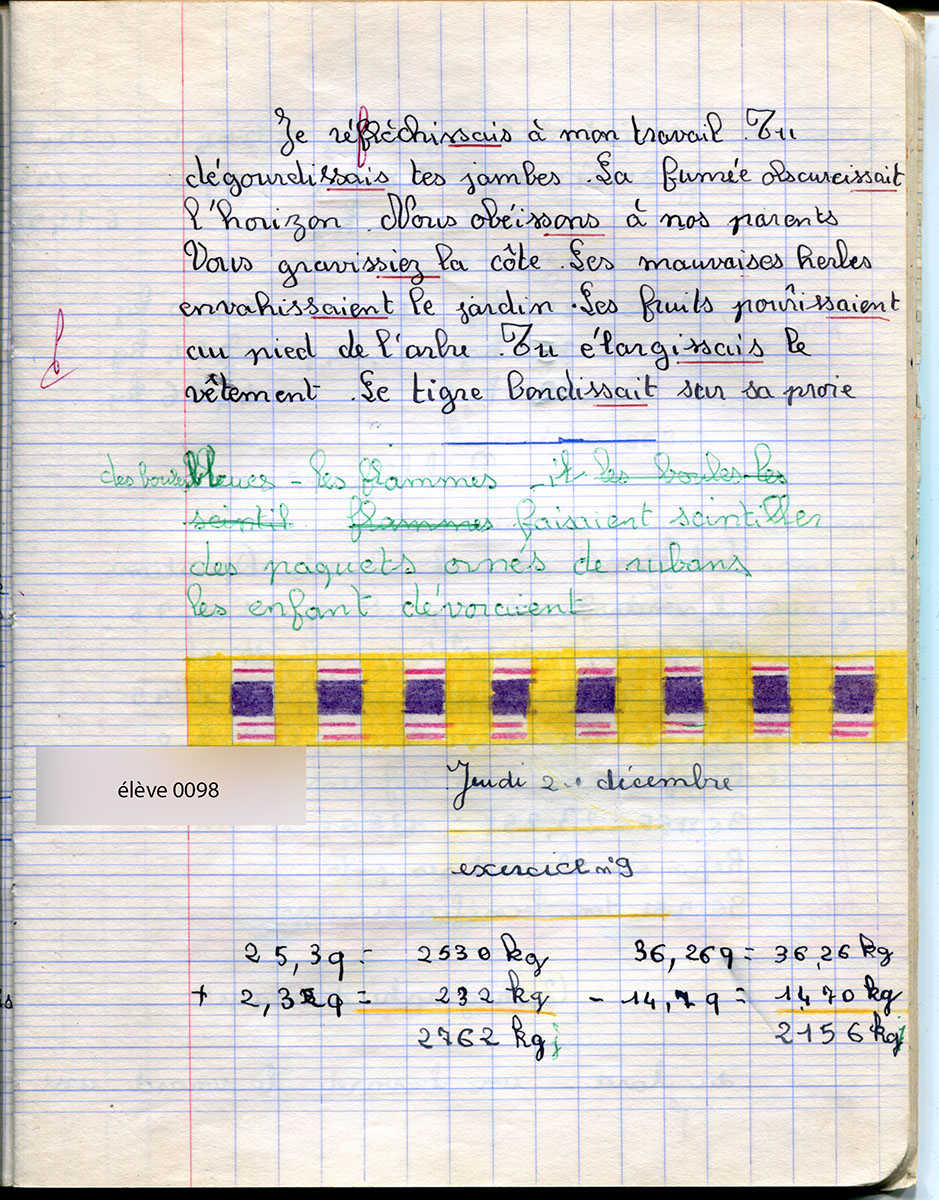 Je réfléchissais à mon travail. Tu
dégourdissais tes jambes. La fumée obscurcissait
l'horizon. Nous obéissons à nos parents
Vous gravissiez la côte. Les mauvaises herbes
envahissaient le jardin. Les fruits pourrissaient
au pied de l'arbre. Tu élargissais le
vêtement. Le tigre bondissait sur sa proie
des boules bleues - les flammes - it les boules les
scintil flammes faisaient scintiller
des paquets ornés de rubans
les enfant dévoraient
élève 0098
Jeudi 2 décembre
exercice n°9
25,3q = 2530 kg 36,26q = 36,26 kg
+ 2,32q = 232 kg - 14,7q = 14,70 kg
2762 kg j 2156 kg j